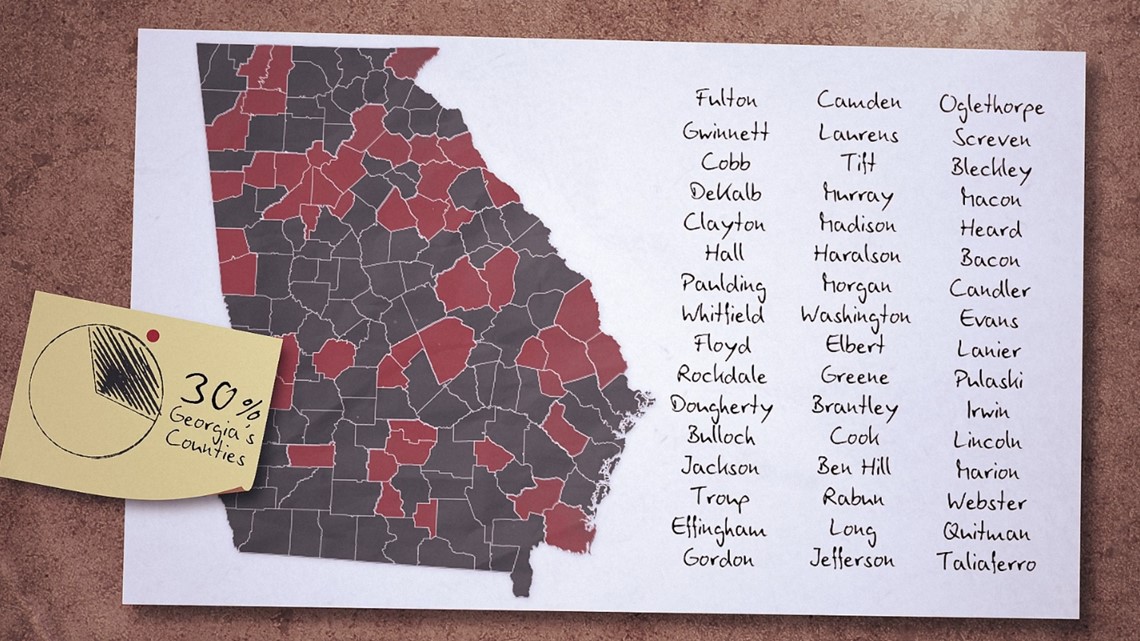 30%
Georgia's
Counties
Fulton
Gwinnett
Cobb
DeKalb
Clayton
Hall
Paulding
Whitfield
Floyd
Rockdale
Dougherty
Bulloch
Jackson
Troup
Effingham
Gordon
Camden
Laurens
Tift
Murray
Madison
Haralson
Morgan
Washington
Elbert
Greene
Brantley
Cook
Ben Hill
Rabun
Long
Jefferson
Oglethorpe
Screven
Bleckley
Macon
Heard
Bacon
Candler
Evans
Lanier
Pulaski
Irwin
Lincoln
Marion
Webster
Quitman
Taliaferro